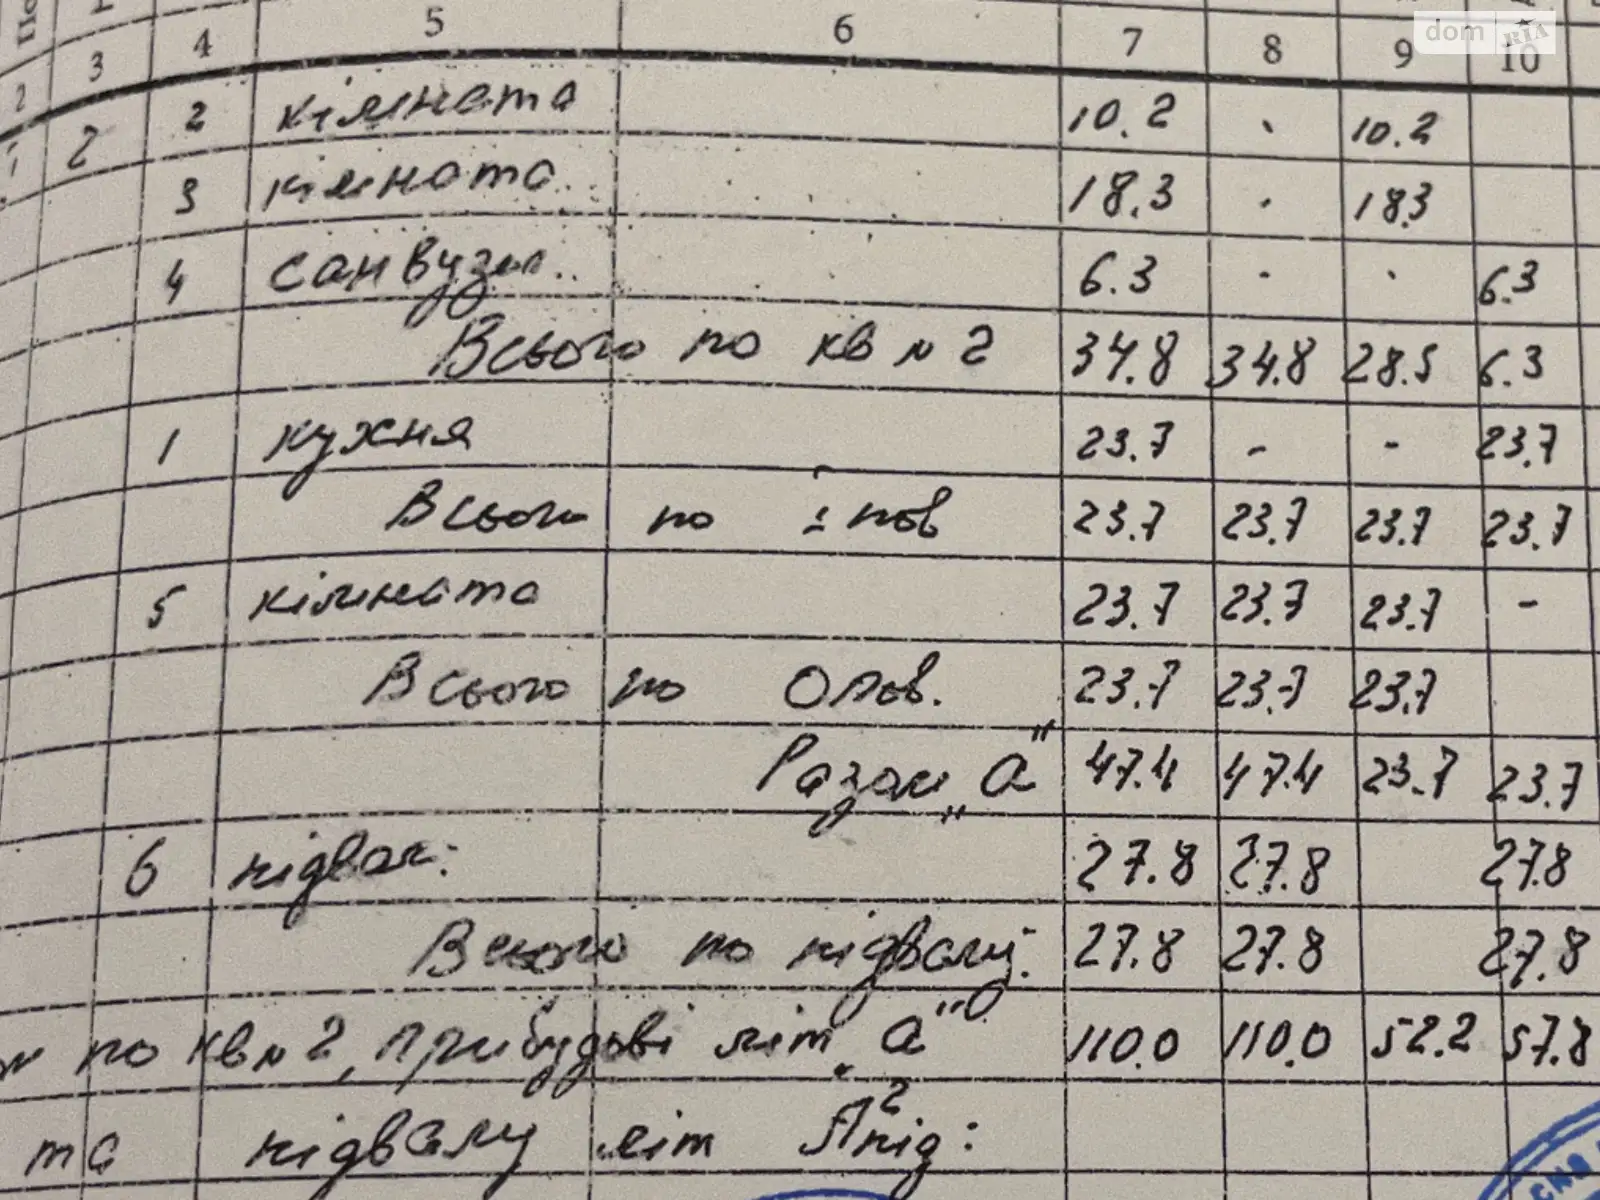 dom RIA
2 3 4 5 6 7 8 9 10
1 2 2 кімната 10.2 - 10.2
3 кімната 18.3 - 18.3
4 санвузол 6.3 - - 6.3
Всього по кв N 2 34.8 34.8 28.5 6.3
1 кухня 23.7 - - 23.7
Всього по 1 пов 23.7 23.7 23.7 23.7
5 кімната 23.7 23.7 23.7 -
Всього по 0 пов. 23.7 23.7 23.7
Разом „а" 47.4 47.4 23.7 23.7
6 підвал: 27.8 27.8 27.8
Всього по підвалу: 27.8 27.8 27.8
по кв N 2, прибудові літ „а" 110.0 110.0 52.2 57.8
та підвалу літ А²під: